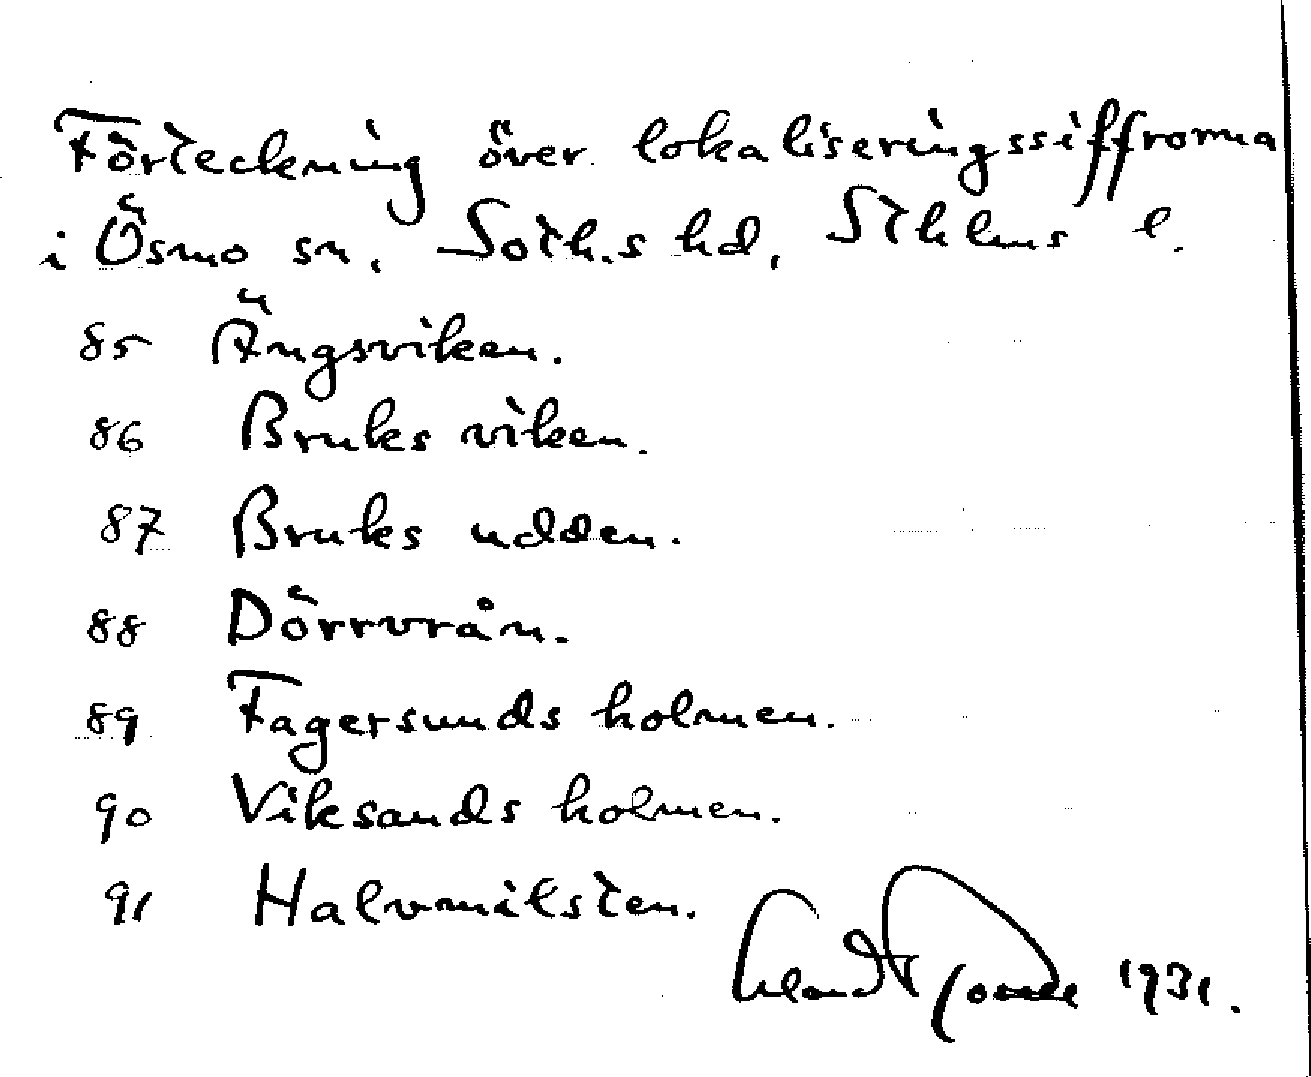 Förteckning över lokaliseringssiffrorna
i Ösmo sn, Soth.s hd, Sthlms l.
85 Ängsviken.
86 Bruksviken.
87 Bruksudden.
88 Dörrvrån.
89 Fagersundsholmen.
90 Viksandsholmen.
91 Halvmilsten.
1931.